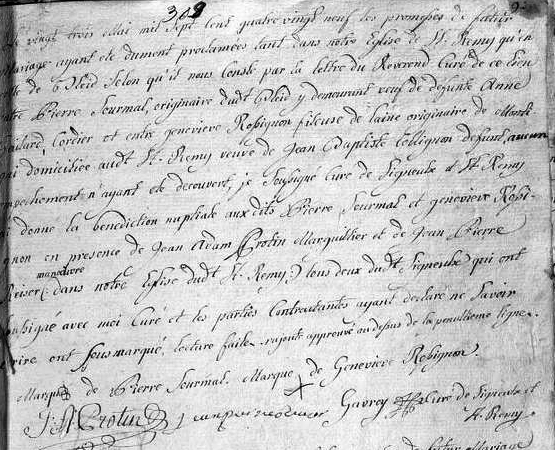 309
vingt trois Mai mil sept cent quatre vingt neuf les promesses de futur
mariage ayant eté dument proclamées tant dans notre Eglise de St. Remy qu'en
de Bleid selon qu'il nous conste par la lettre du Reverend Curé de ce lieu
Pierre Journal, originaire dudt Bleid y demeurant veuf de defunte Anne
cordier et entre genevieve Robignon fileuse de laine originaire de
domiciliée audt St. Remy veuve de Jean Baptiste Collignon defunt, aucun
empechement n'ayant eté decouvert, je soussigné Curé de Signeulx et St. Remy
ai donné la benediction nuptiale aux dits Pierre Journal et genevieve Robi-
gnon en presence de Jean Adam Crotin Marguillier et de Jean Pierre
manœuvre
Reiser (dans notre Eglise dudt St. Remy) tous deux dudt Signeulx qui ont
soussigné avec moi Curé et les parties Contractantes ayant declaré ne savoir
ecrire ont sousmarqué, lecture faite. rajoute approuvé au dessus de la penultieme ligne.
Marque de Pierre Journal. Marque de Genevieve Robignon.
J: A Crotin Gavroy Curé de Signeulx et
St. Remy
futur Mariage